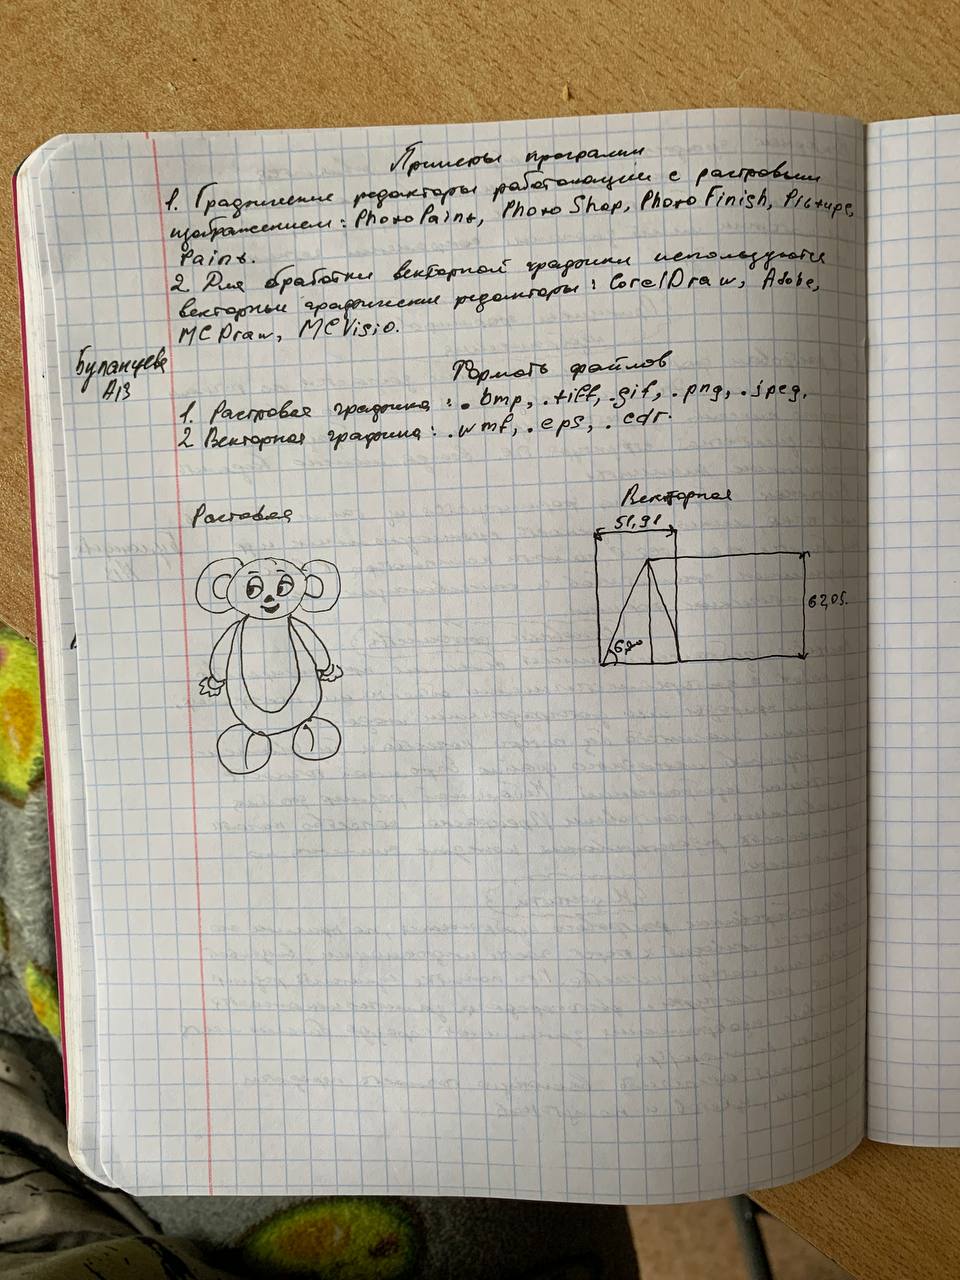 Примеры программ
1. Графические редакторы работающии с растровыми
изображением: Photo Paint, Photo Shop, Photo Finish, Picture
Paint.
2 Для обработки векторной графики используются
векторные графические редакторы: CorelDraw, Adobe,
MCDraw, MCVisio.
Буланцева
А13
Форматы файлов
1. Растровая графика: .bmp, .tiff, .gif, .png, .jpeg.
2 Векторная графика: .wmf, .eps, .cdr.
Растовая
Векторная
51,91
62,05.